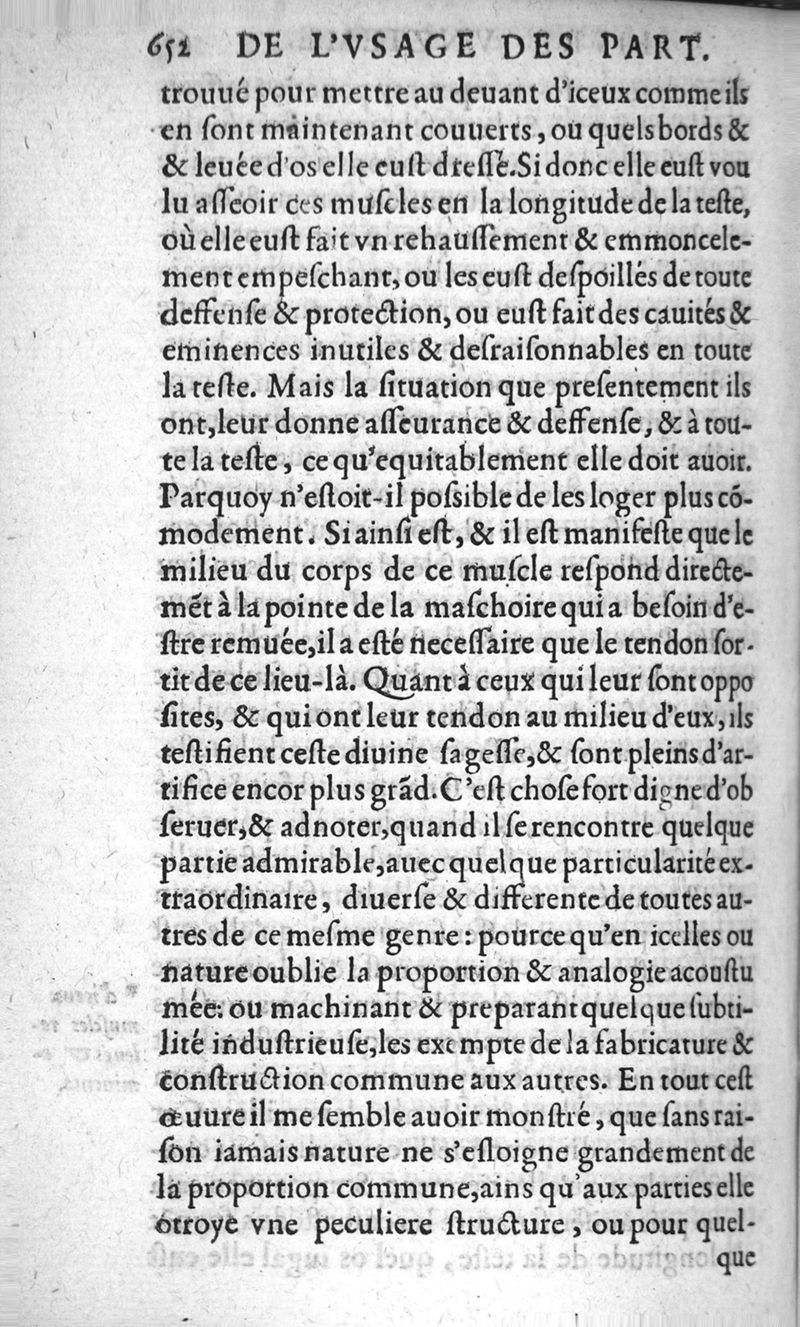 652 DE L'VSAGE DES PART.
trouué pour mettre au deuant d'iceux comme ils
en ſont maintenant couuerts, ou quels bords &
& leuée d'os elle euſt dreſſé. Si donc elle euſt vou
lu aſſeoir ces muſcles en la longitude de la teſte,
où elle euſt fait vn rehauſſement & emmoncele-
ment empeſchant, ou les euſt deſpoillés de toute
deffenſe & protection, ou euſt fait des cauités &
eminences inutiles & deſraiſonnables en toute
la teſte. Mais la ſituation que preſentement ils
ont, leur donne aſſeurance & deffenſe, & à tou-
te la teſte, ce qu'equitablement elle doit auoir.
Parquoy n'eſtoit-il poſsible de les loger plus cõ-
modement. Si ainſi eſt, & il eſt manifeſte que le
milieu du corps de ce muſcle reſpond directe-
mẽt à la pointe de la maſchoire qui a beſoin d'e-
ſtre remuée, il a eſté neceſſaire que le tendon ſor-
tit de ce lieu-là. Quant à ceux qui leur ſont oppo
ſites, & qui ont leur tendon au milieu d'eux, ils
teſtifient ceſte diuine ſageſſe, & ſont pleins d'ar-
tifice encor plus grãd. C'eſt choſe fort digne d'ob
ſeruer, & adnoter, quand il ſe rencontre quelque
partie admirable, auec quelque particularité ex-
traordinaire, diuerſe & differente de toutes au-
tres de ce meſme genre: pource qu'en icelles ou
nature oublie la proportion & analogie acouſtu
mée: ou machinant & preparant quelque ſubti-
lité induſtrieuſe, les exempte de la fabricature &
conſtruction commune aux autres. En tout ceſt
œuure il me ſemble auoir monſtré, que ſans rai-
ſon iamais nature ne s'eſloigne grandement de
la proportion commune, ains qu'aux parties elle
otroye vne peculiere ſtructure, ou pour quel-
que